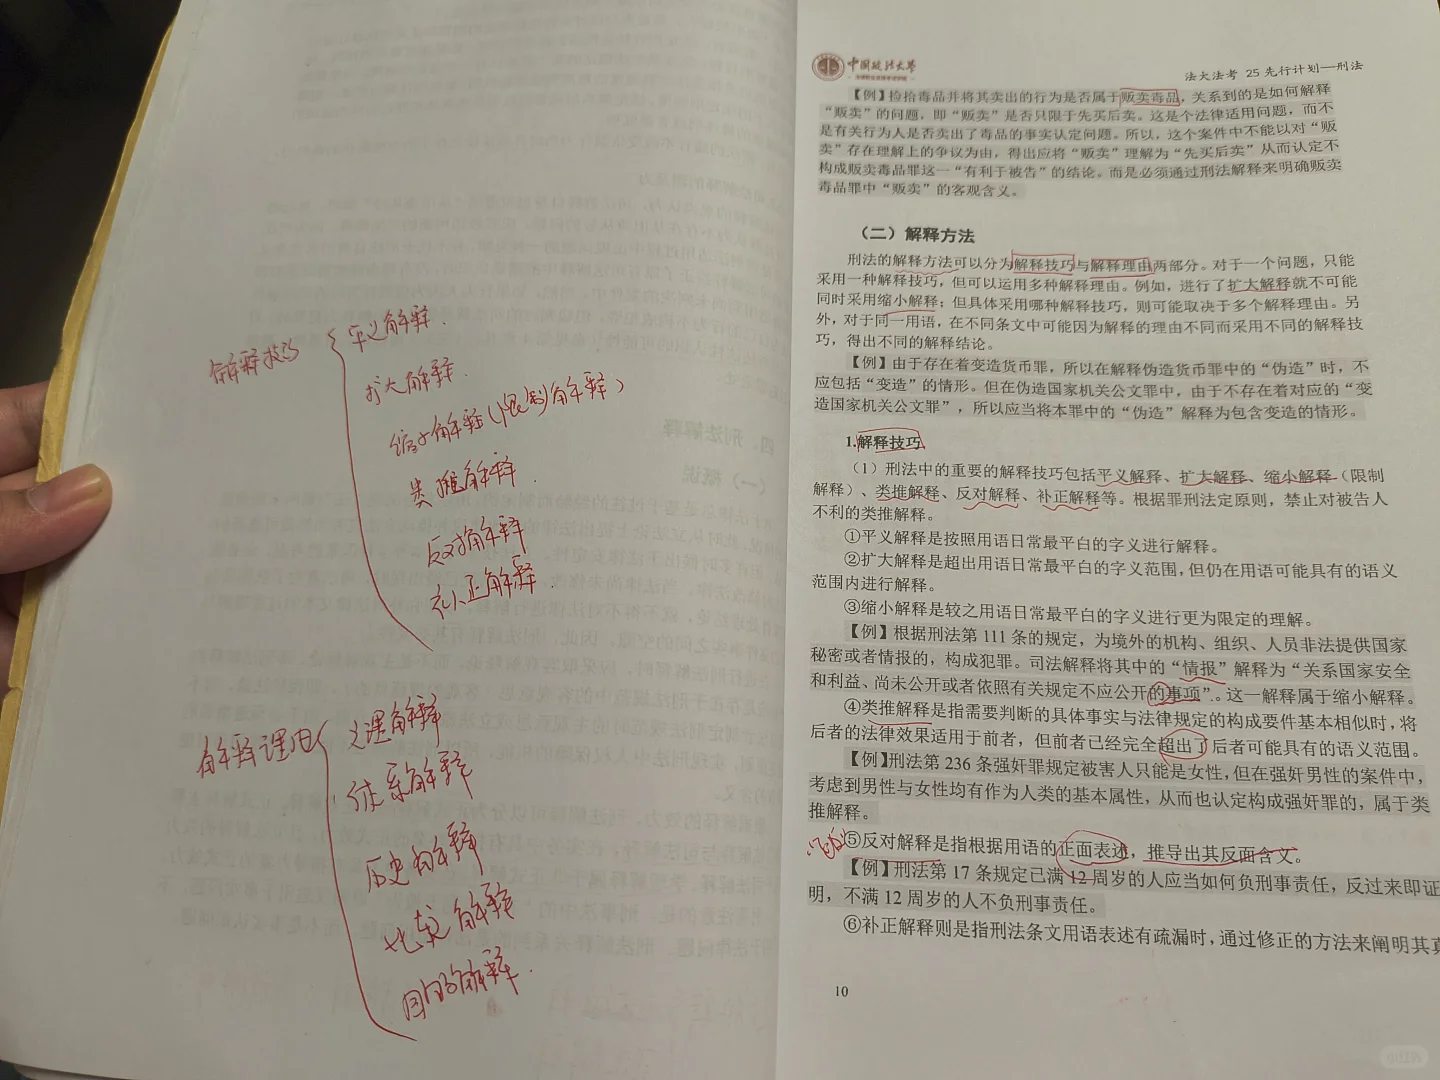 解释技巧
平义解释.
扩大解释.
缩小解释(限制解释)
类推解释.
反对解释
补正解释.
解释理由
文理解释
体系解释
历史解释
比较解释
目的解释.
中国政法大学
法大法考 25 先行计划—刑法
【例】捡拾毒品并将其卖出的行为是否属于贩卖毒品，关系到的是如何解释
“贩卖”的问题，即“贩卖”是否只限于先买后卖。这是个法律适用问题，而不
是有关行为人是否卖出了毒品的事实认定问题。所以，这个案件中不能以对“贩
卖”存在理解上的争议为由，得出应将“贩卖”理解为“先买后卖”从而认定不
构成贩卖毒品罪这一“有利于被告”的结论。而是必须通过刑法解释来明确贩卖
毒品罪中“贩卖”的客观含义。
（二）解释方法
刑法的解释方法可以分为解释技巧与解释理由两部分。对于一个问题，只能
采用一种解释技巧，但可以运用多种解释理由。例如，进行了扩大解释就不可能
同时采用缩小解释；但具体采用哪种解释技巧，则可能取决于多个解释理由。另
外，对于同一用语，在不同条文中可能因为解释的理由不同而采用不同的解释技
巧，得出不同的解释结论。
【例】由于存在着变造货币罪，所以在解释伪造货币罪中的“伪造”时，不
应包括“变造”的情形。但在伪造国家机关公文罪中，由于不存在着对应的“变
造国家机关公文罪”，所以应当将本罪中的“伪造”解释为包含变造的情形。
1.解释技巧
（1）刑法中的重要的解释技巧包括平义解释、扩大解释、缩小解释（限制
解释）、类推解释、反对解释、补正解释等。根据罪刑法定原则，禁止对被告人
不利的类推解释。
①平义解释是按照用语日常最平白的字义进行解释。
②扩大解释是超出用语日常最平白的字义范围，但仍在用语可能具有的语义
范围内进行解释。
③缩小解释是较之用语日常最平白的字义进行更为限定的理解。
【例】根据刑法第 111 条的规定，为境外的机构、组织、人员非法提供国家
秘密或者情报的，构成犯罪。司法解释将其中的“情报”解释为“关系国家安全
和利益、尚未公开或者依照有关规定不应公开的事项”。这一解释属于缩小解释。
④类推解释是指需要判断的具体事实与法律规定的构成要件基本相似时，将
后者的法律效果适用于前者，但前者已经完全超出了后者可能具有的语义范围。
【例】刑法第 236 条强奸罪规定被害人只能是女性，但在强奸男性的案件中，
考虑到男性与女性均有作为人类的基本属性，从而也认定构成强奸罪的，属于类
推解释。
⑤反对解释是指根据用语的正面表述，推导出其反面含义。
【例】刑法第 17 条规定已满 12 周岁的人应当如何负刑事责任，反过来即证
明，不满 12 周岁的人不负刑事责任。
⑥补正解释则是指刑法条文用语表述有疏漏时，通过修正的方法来阐明其真
10
小红书